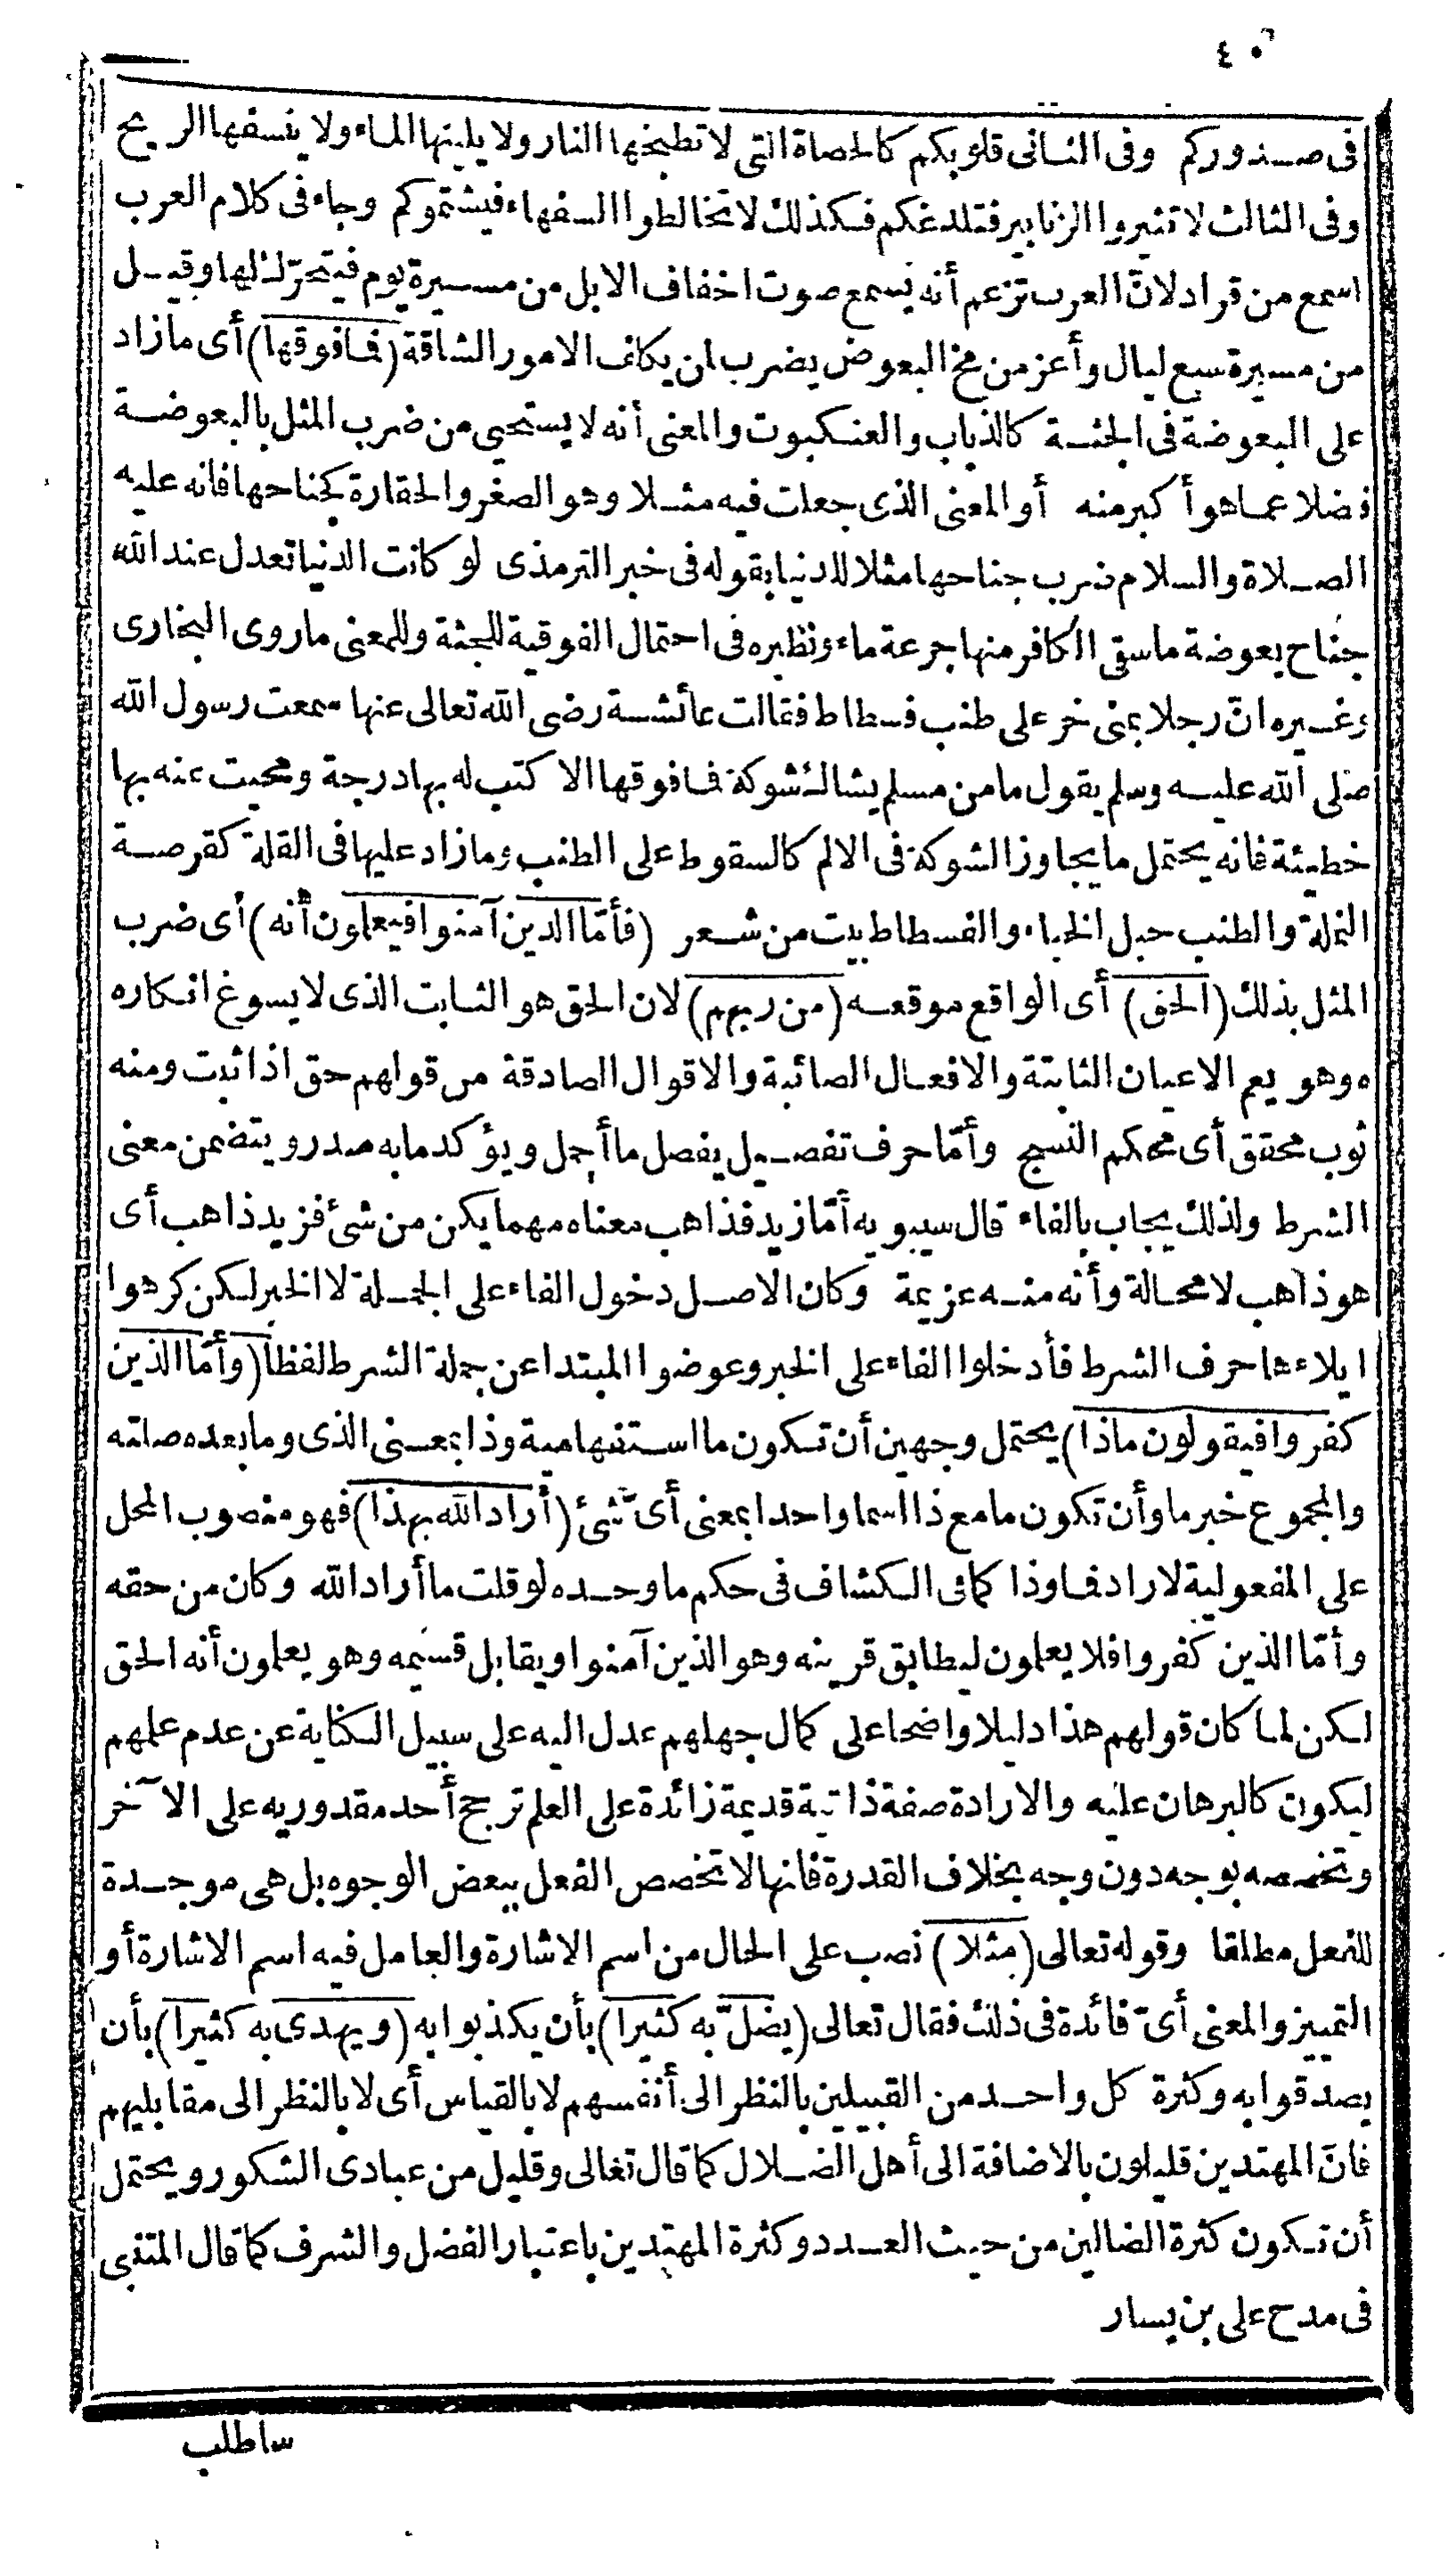 ٤٠
فى صدوركم وفى الثانى قلوبكم كالحصاة التى لا تطبخها النار ولا يلينها الماء ولا ينسفها الريح
وفى الثالث لا تثيروا الزنابير فتلدغكم فكذلك لا تخالطوا السفهاء فيشتموكم وجاء فى كلام العرب
اسمع من قراد لانّ العرب تزعم أنه يسمع صوت اخفاف الابل من مسيرة يوم فيتحرّك لها وقيل
من مسيرة سبع ليال وأعز من مخ البعوض يضرب لمن يكلف الامور الشاقة (فما فوقها) أى ما زاد
على البعوضة فى الجثة كالذباب والعنكبوت والمعنى أنه لا يستحيى من ضرب المثل بالبعوضة
فضلا عما هو أكبر منه أو المعنى الذى جعلت فيه مثلا وهو الصغر والحقارة كجناحها فانه عليه
الصلاة والسلام ضرب جناحها مثلا للدنيا بقوله فى خبر الترمذى لو كانت الدنيا تعدل عند الله
جناح بعوضة ما سقى الكافر منها جرعة ماء ونظيره فى احتمال الفوقية للجثة وللمعنى ما روى البخارى
وغيره انّ رجلا بمنى خر على طنب فسطاط فقالت عائشة رضى الله تعالى عنها سمعت رسول الله
صلى الله عليه وسلم يقول ما من مسلم يشاك شوكة فما فوقها الا كتب له بها درجة ومحيت عنه بها
خطيئة فانه يحتمل ما يجاوز الشوكة فى الالم كالسقوط على الطنب وما زاد عليها فى القلة كقرصة
النملة والطنب حبل الخباء والفسطاط بيت من شعر (فأمّا الذين آمنوا فيعلمون أنه) أى ضرب
المثل بذلك (الحق) أى الواقع موقعه (من ربهم) لان الحق هو الثابت الذى لا يسوغ انكاره
ه وهو يعم الاعيان الثابتة والافعال الصائبة والاقوال الصادقة من قولهم حق اذا ثبت ومنه
ثوب محقق أى محكم النسج وأمّا حرف تفصيل يفصل ما أجمل ويؤكد ما به صدر ويتضمن معنى
الشرط ولذلك يجاب بالفاء قال سيبويه أمّا زيد فذاهب معناه مهما يكن من شئ فزيد ذاهب أى
هو ذاهب لا محالة وأنه منه عزيمة وكان الاصل دخول الفاء على الجملة لا الخبر لكن كرهوا
ايلاءها حرف الشرط فأدخلوا الفاء على الخبر وعوضوا المبتدا عن جملة الشرط لفظا (وأمّا الذين
كفروا فيقولون ماذا) يحتمل وجهين أن تكون ما استفهامية وذا بمعنى الذى وما بعده صلته
والمجموع خبر ما وأن تكون ما مع ذا اسما واحدا بمعنى أىّ شئ (أراد الله بهذا) فهو منصوب المحل
على المفعولية لاراد فماوذا كما فى الكشاف فى حكم ما وحده لو قلت ما أراد الله وكان من حقه
وأمّا الذين كفروا فلا يعلمون ليطابق قرينه وهو الذين آمنوا ويقابل قسيمه وهو يعلمون أنه الحق
لكن لما كان قولهم هذا دليلا واضحا على كمال جهلهم عدل اليه على سبيل الكناية عن عدم علمهم
ليكون كالبرهان عليه والارادة صفة ذاتية قديمة زائدة على العلم ترجح أحد مقدوريه على الآخر
وتخصصه بوجه دون وجه بخلاف القدرة فانها لا تخصص الفعل ببعض الوجوه بل هى موجدة
للفعل مطلقا وقوله تعالى (مثلا) نصب على الحال من اسم الاشارة والعامل فيه اسم الاشارة أو
التمييز والمعنى أىّ فائدة فى ذلك فقال تعالى (يضلّ به كثيرا) بأن يكذبوا به (ويهدى به كثيرا) بأن
يصدقوا به وكثرة كل واحد من القبيلين بالنظر الى أنفسهم لا بالقياس أى لا بالنظر الى مقابليهم
فانّ المهتدين قليلون بالاضافة الى أهل الضلال كما قال تعالى وقليل من عبادى الشكور ويحتمل
أن تكون كثرة الضالين من حيث العدد وكثرة المهتدين باعتبار الفضل والشرف كما قال المتنبى
فى مدح على بن يسار
ساطلب